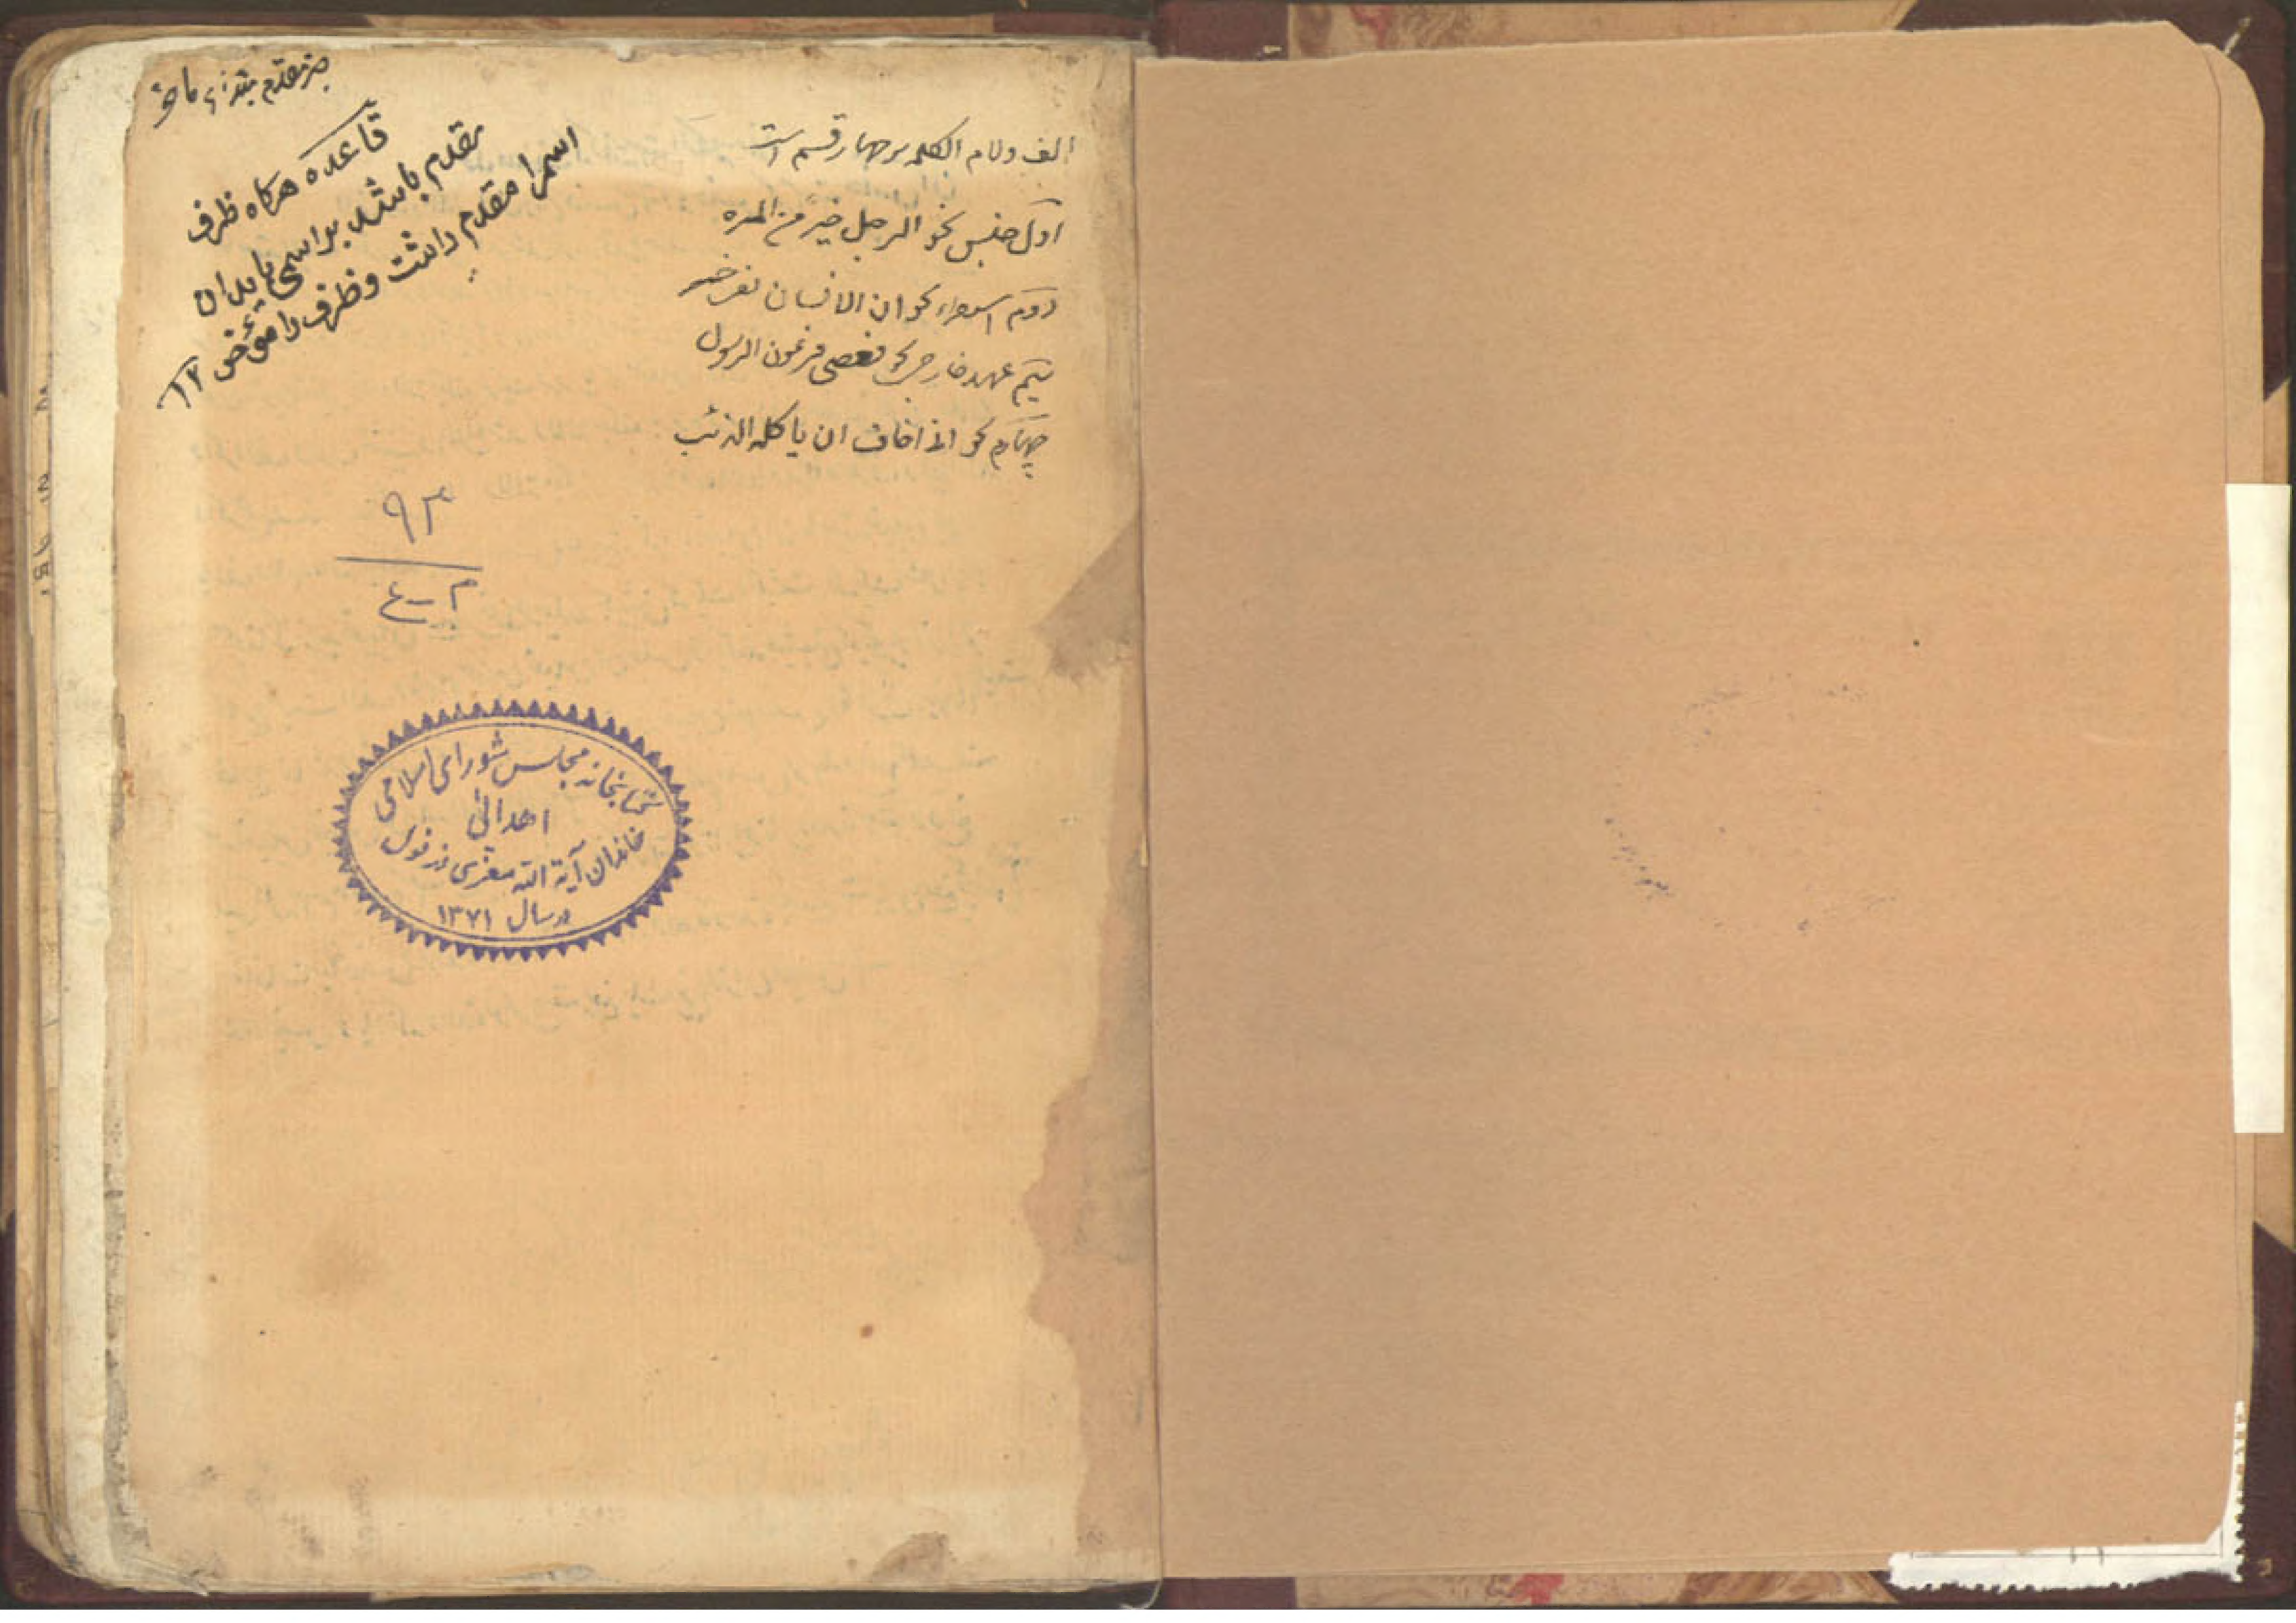 الف ولام الکلمه بر چهار قسم است
اول جنس نحو الرجل خیر من المره
دوم استغراق نحو ان الانسان لفی خسر
سیم عهد خارجی نحو فعصی فرعون الرسول
چهارم نحو اخاف ان یاکله الذئب
خبر مقدم
قاعده هرکاه ظرف
مقدم باشد بر اسمی باید ان
اسم را مقدم داشت و ظرف را مؤخر ۱۲
۹۳
کتابخانه مجلس شورای اسلامی
اهدائی
خاندان آیة الله معزی دزفولی
در سال ۱۳۷۱